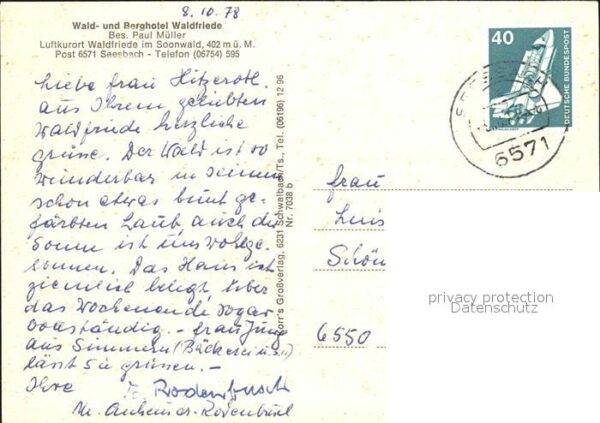 8.10.78
Wald- und Berghotel Waldfriede
Bes. Paul Müller
Luftkurort Waldfriede im Soonwald, 402 m ü. M.
Post 6571 Seesbach - Telefon (06754) 595
Liebe Frau Hitzeroth.
aus Ihrem geliebten
Waldfriede herzliche
Grüsse. Der Wald ist so
wunderbar in seinem
schon etwas bunt ge-
färbten Laub, auch die
Sonne ist uns wohlge-
sonnen. Das Haus ist
ziemlich belegt, über
das Wochenende sogar
vollständig. - Frau Jung
aus Simmern (Bäckerei u.s.)
lässt Sie grüssen. -
Ihre
Rodenbusch
Großverlag, 6231 Schwalbach/Ts., Tel. (06196) 12 96
Nr. 7038 b
40
DEUTSCHE BUNDESPOST
6571
Frau
Luis
Schön
6550
privacy protection
Datenschutz